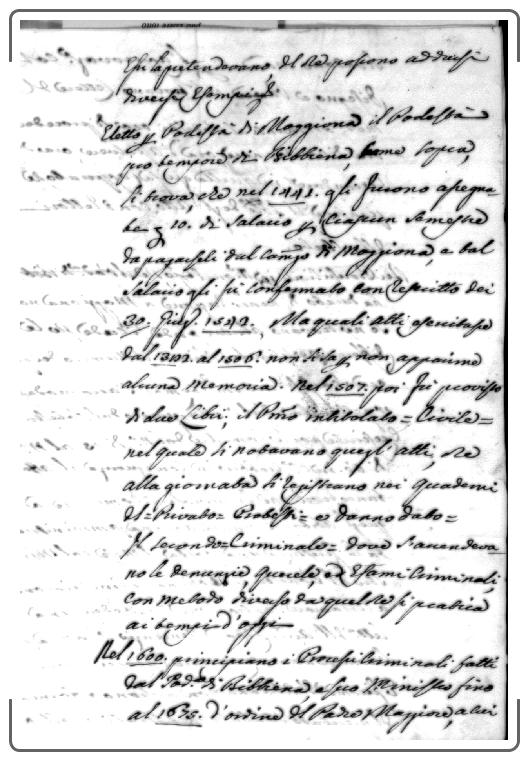 Essi la pretendevano, del Re posono addursi
diversi Esempi
Eletto p Podestà di Moggiona il Podestà
pro tempore di Bibbiena, come sopra,
si trova, che nel 1441. gli furono asegna
te 10. di Salario p Ciascun Semestre
da pagarseli dal Com.e di Moggiona, e tal
Salario gli fu Confermato con Rescritto dei
30. Giug. 1542. Ma quali atti esercitasse
dal 1392. al 1506. non si sa p non apparirne
alcuna Memoria. Nel 1507. poi fu provisto
di due Libri, il Pmo intitolato = Civile =
nel quale si notavano quegl' atti, che
alla giornata si registrano nei quaderni
del = Privato = Protesti = e Danno dato =
Il secondo = Criminale = dove s'accendeva
no le denunzie, querele, ed Esami Criminali,
con metodo diverso da quel che si pratica
ai tempi d'oggi
Nel 1600. principiano i Procesi Criminali fatti
dal Pod.à di Bibbiena, e suo Ministro fino
al 1675. d'ordine del Padre Maggiore, a cui